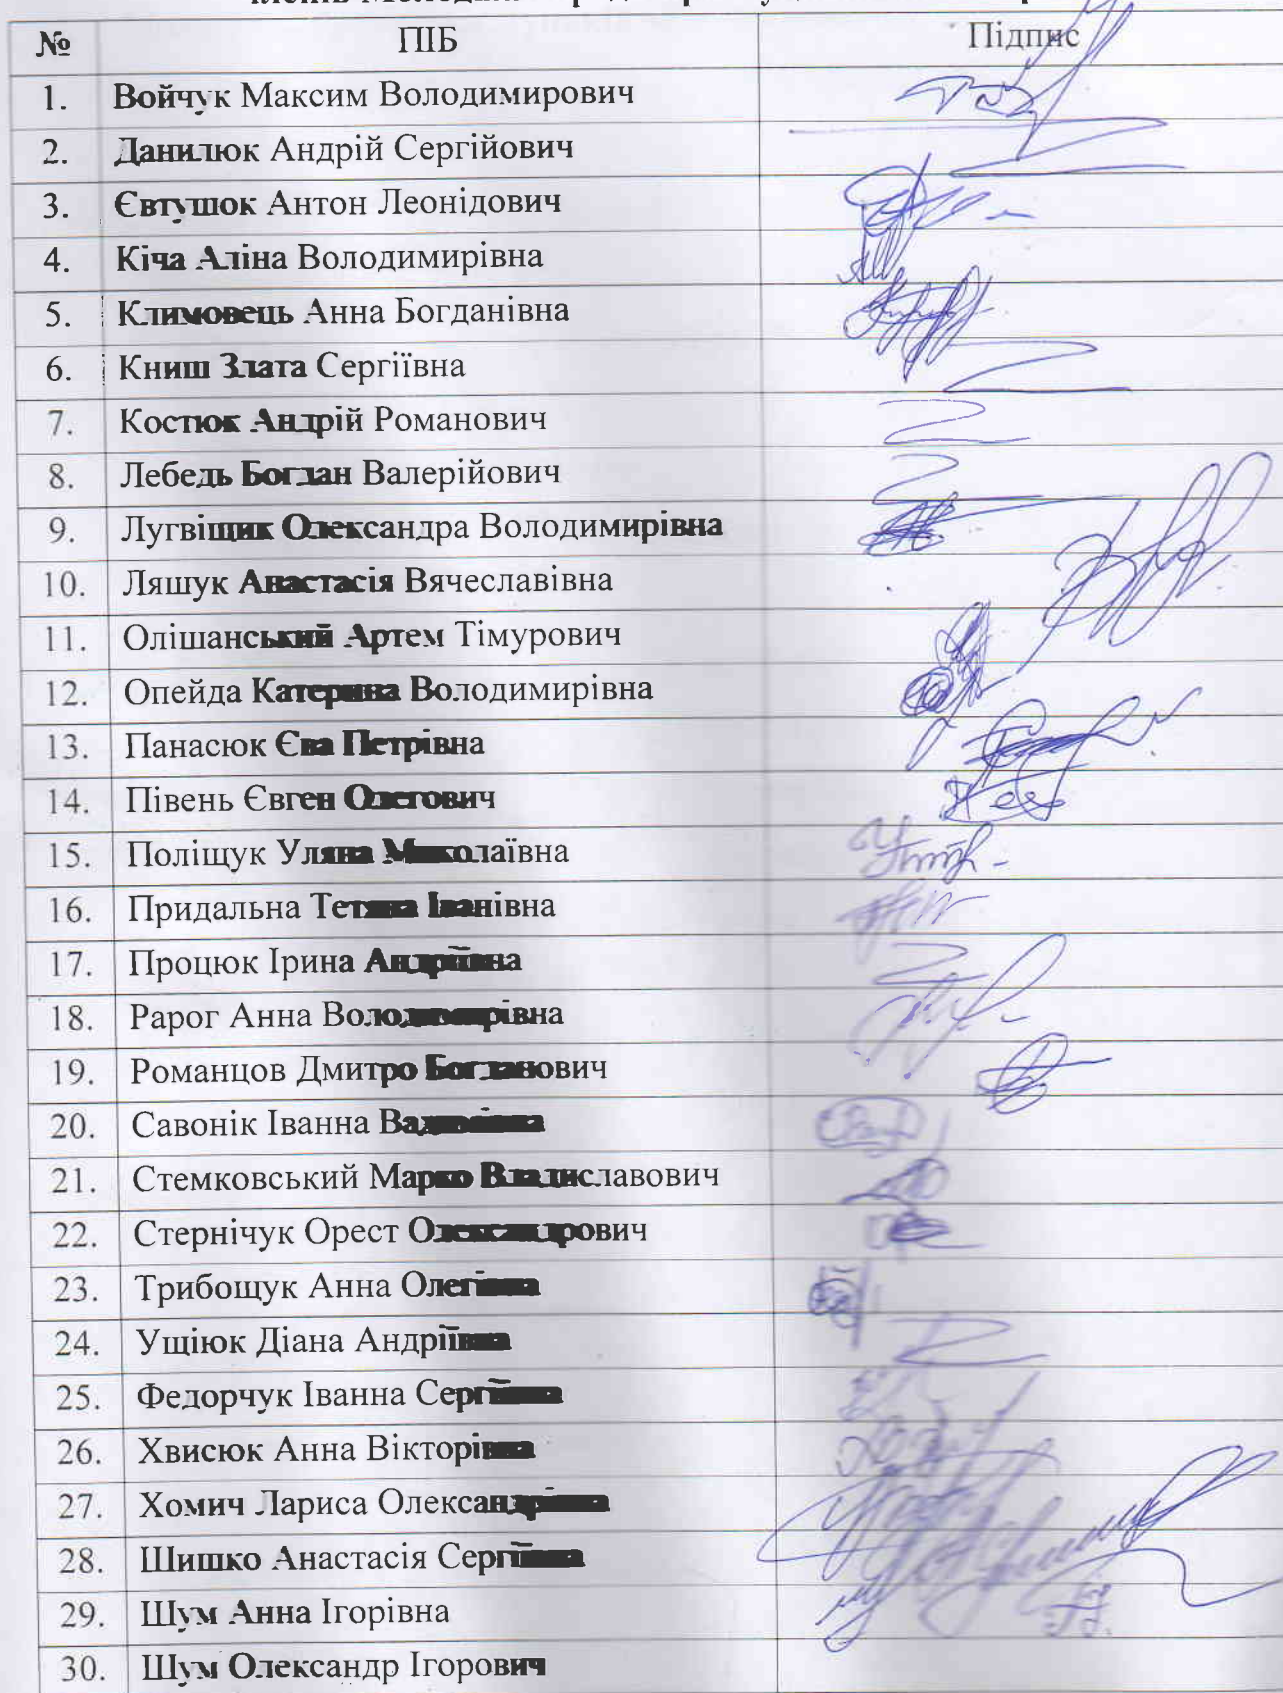 № ПІБ Підпис
1. Войчук Максим Володимирович
2. Данилюк Андрій Сергійович
3. Євтушок Антон Леонідович
4. Кіча Аліна Володимирівна
5. Климовець Анна Богданівна
6. Книш Злата Сергіївна
7. Костюк Андрій Романович
8. Лебедь Богдан Валерійович
9. Лугвіщик Олександра Володимирівна
10. Ляшук Анастасія Вячеславівна
11. Олішанський Артем Тімурович
12. Опейда Катерина Володимирівна
13. Панасюк Єва Петрівна
14. Півень Євген Олегович
15. Поліщук Уляна Миколаївна
16. Придальна Тетяна Іванівна
17. Процюк Ірина Андріївна
18. Рарог Анна Володимирівна
19. Романцов Дмитро Богданович
20. Савонік Іванна Вадимівна
21. Стемковський Марко Владиславович
22. Стернічук Орест Олександрович
23. Трибощук Анна Олегівна
24. Ущіюк Діана Андріївна
25. Федорчук Іванна Сергіївна
26. Хвисюк Анна Вікторівна
27. Хомич Лариса Олександрівна
28. Шишко Анастасія Сергіївна
29. Шум Анна Ігорівна
30. Шум Олександр Ігорович